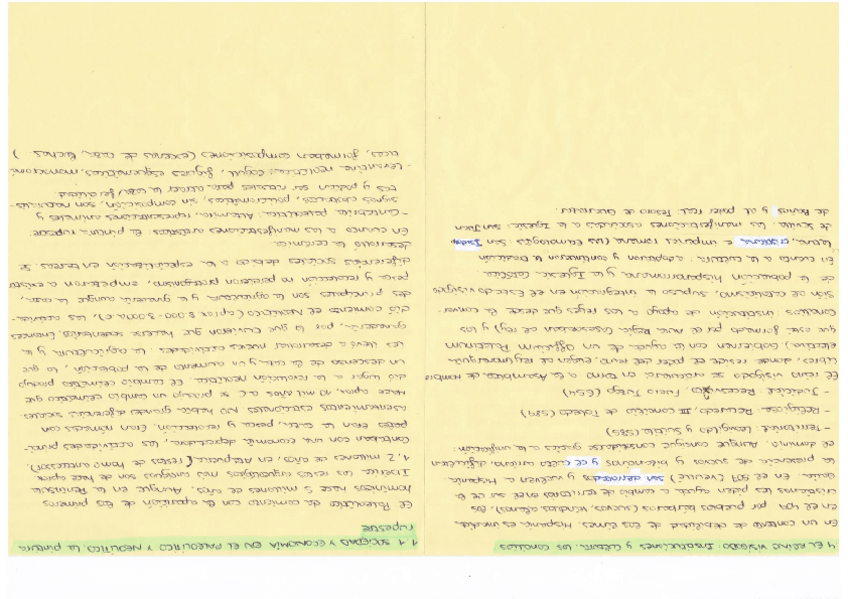 1.1 SOCIEDAD Y ECONOMÍA EN EL PALEOLÍTICO Y NEOLÍTICO. LA pintura
rupestre
El Paleolítico da comienzo con la aparición de los primeros
homínidos hace 5 millones de años. Aunque en la Península
Ibérica los restos arqueológicos más antiguos son de hace aprox
1,2 millones de años, en Atapuerca (restos de homo antecessor).
Contaban con una economía depredadora, las actividades princi-
pales eran la caza, pesca y recolección. Eran nómadas con
asentamientos estacionales. NO había grandes diferencias sociales
Hace aprox. 10 mil años a.C se produjo un cambio climático que
dió lugar a la revolución neolítica. El cambio climático produjo
un descenso de la caza y un aumento de la población, lo que
les llevó a desarrollar nuevas actividades: la agricultura y la
ganadería, por lo que tuvieron que hacerse sedentarios, entonces
dió comienzo el Neolítico (aprox 8.000-3.000a.C), donde las activida-
des principales son la agricultura y la ganadería aunque la caza,
pesca y recolección no perdieron protagonismo, empezaron a existir
diferencias sociales debido a la especialización en tareas. Se
desarrolla la cerámica.
En cuanto a las manifestaciones artísticas: el pintura rupestre:
- Cantábrica paleolítica: Altamira, representaciones animales y
signos abstractos, policromáticas, sin composición, son naturalis-
tas y podían ser rituales para atraer la caza/fertilidad
- Levantina neolítica: Cogull, figuras esquemáticas, monocromá-
ticas, formaban composiciones (escenas de caza, luchas )
4 EL REINO VISIGODO: Instituciones y cultura. Los concilios
En un contexto de debilidad de los romanos, Hispania es invadida
en el 409 por pueblos bárbaros (suevos, vándalos, alanos), los
cristianos les piden ayuda a cambio de territorios en el sur de la
Galia. En el 507 (Vouillé) son derrotados y vuelven a Hispania
la presencia de suevos y bizantinos y el culto arriano dificultaron
el dominio. Aunque consigue consolidarse gracias a la unificación:
- Territorial: Leovigildo y Suintila (585)
- Religiosa: Recaredo, III Concilio de Toledo (589)
- Judicial: Recesvinto, Fuero Juzgo (654)
El reino visigodo se articulaba en torno a la Asamblea de Hombres
Libres, donde reside el poder del reino, eligen al rey (monarquía
electiva) Gobiernan con la ayuda de un Officium Palatinum
que está formado por el Aula Regia (asesoraban al rey) y los
Concilios: institución de apoyo a los reyes que desde la conver-
sión al catolicismo, supuso la integración en el Estado visigodo
de la población hispanorromana y la Iglesia católica
En cuanto a la cultura: adoptaron y continuaron la tradición
latina, cristiana e imperial romana (Las Etimologías San Isidoro
de Sevilla. Las manifestaciones asociadas a la Iglesia: San Juan
de Baños y al poder real: Tesoro de Guarrazar.